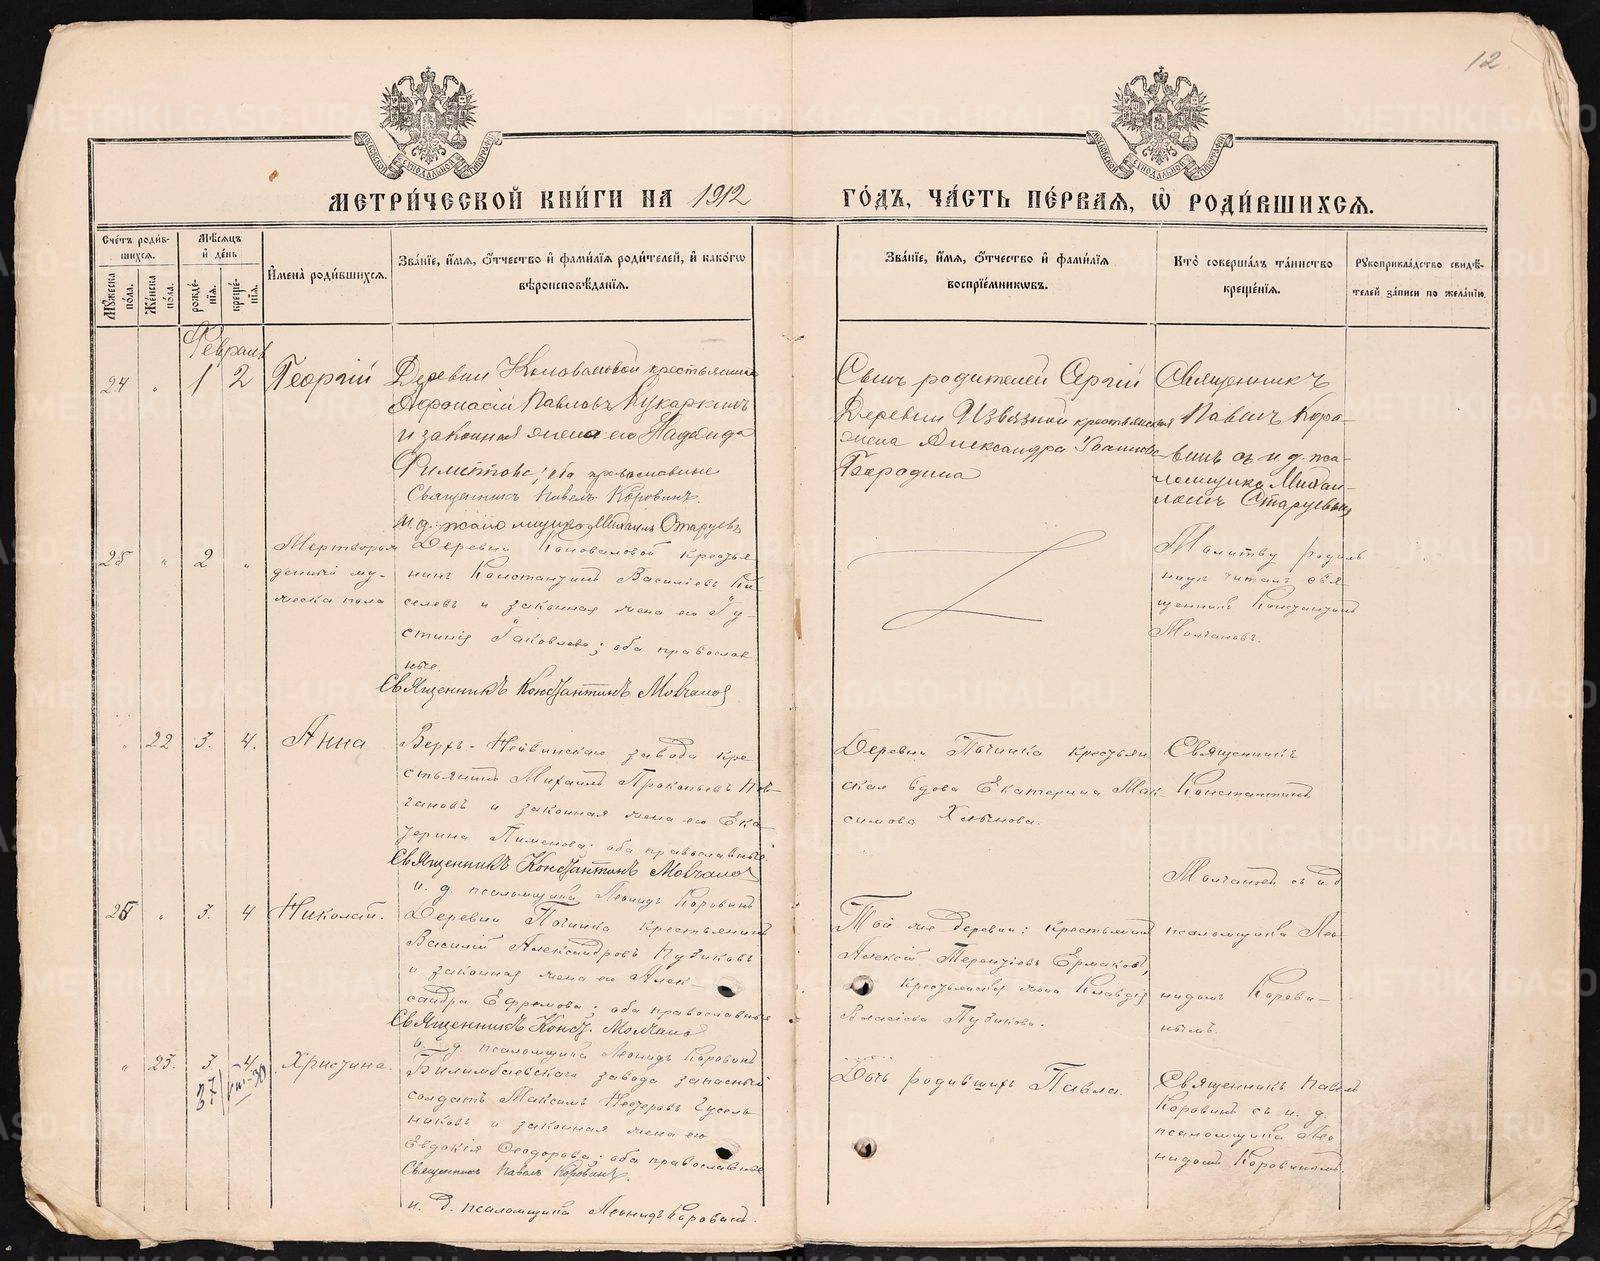 12
МЕТРИ́ЧЕСКОЙ КНИ́ГИ НА 1912 ГО́ДЪ, ЧА́СТЬ ПЕ́РВАЯ, Ѡ РОДИ́ВШИХСЯ.
Сче́тъ роди́в-
шихся.
Му́жеска по́ла.
Же́нска по́ла.
Мѣ́сяцъ
и҆ де́нь
рожде́-
нїя.
креще́-
нїя.
И҆мена̀ роди́вшихся.
Зва́нїе, и҆́мя, ѻ҆́тчество и҆ фами́лїя роди́телей, и҆ како́гѡ
вѣроисповѣ́данїя.
Зва́нїе, и҆́мя, ѻ҆́тчество и҆ фами́лїя
воспрїе́мникѡвъ.
Кто̀ соверша́лъ та́инство
креще́нїя.
Рꙋкоприкла́дство свидѣ́-
телей за́писи по жела́нїю.
Февраль
24 " 1 2 Георгій
Деревни Коноваловой крестьянинъ
Афонасій Павловъ Кукаркинъ
и законная жена его Надежда
оба православные
Священникъ Павелъ Коровинъ.
и. д. псаломщика Михаилъ Старцевъ
Сынъ родителей Сергій
Деревни Извязной крестьянская
жена Александра Іоаннова
Бородина
Священникъ
Павелъ Коро-
винъ съ и. д. пса-
ломщика Михаи-
ломъ Старцевымъ
25 " 2 "
Мертворож
денный му-
жеска пола
Деревни Коноваловой крестья
нинъ Константинъ Василіевъ Ки-
селевъ и законная жена его Іу-
стинія Іаковлева; оба православ
ные.
Священникъ Константинъ Молчановъ
Молитву родиль
ницѣ читалъ свя-
щенникъ Константинъ
Молчановъ.
" 22 3. 4. Анна
Верхъ-Нейвинскаго завода кре
стьянинъ Михаилъ Прокопьевъ
и законная жена его Ека
терина Пименова; оба православные.
Священникъ Константинъ Молчановъ
и. д. псаломщика Леонидъ Коровинъ
Деревни Починка крестьян
ская вдова Екатерина Мак
симова
Священникъ
Константинъ
Молчановъ съ и. д
26 " 3. 4 Николай.
Деревни Починка крестьянинъ
Василій Александровъ Пузиковъ
и законная жена его Алек-
сандра Ефремова; оба православные
Священникъ Конст. Молчановъ
и. д. псаломщика Леонидъ Коровинъ
Той же деревни: крестьянинъ
Алексій Терентіевъ Ермаковъ,
крестьянская жена Клавдія
Власіева Пузикова.
псаломщика Лео-
нидомъ Корови-
нымъ.
" 23. 3. 4. Христина.
37
Билимбаевскаго завода запасный
солдатъ Максимъ Несторовъ Гусель
никовъ и законная жена его
Евдокія Ѳеодорова; оба православные
Священникъ Павелъ Коровинъ.
и. д. псаломщика Леонидъ Коровинъ.
Дочь родившихъ Павла.
Священникъ Павелъ
Коровинъ съ и. д.
псаломщика Лео
нидомъ Коровинымъ.